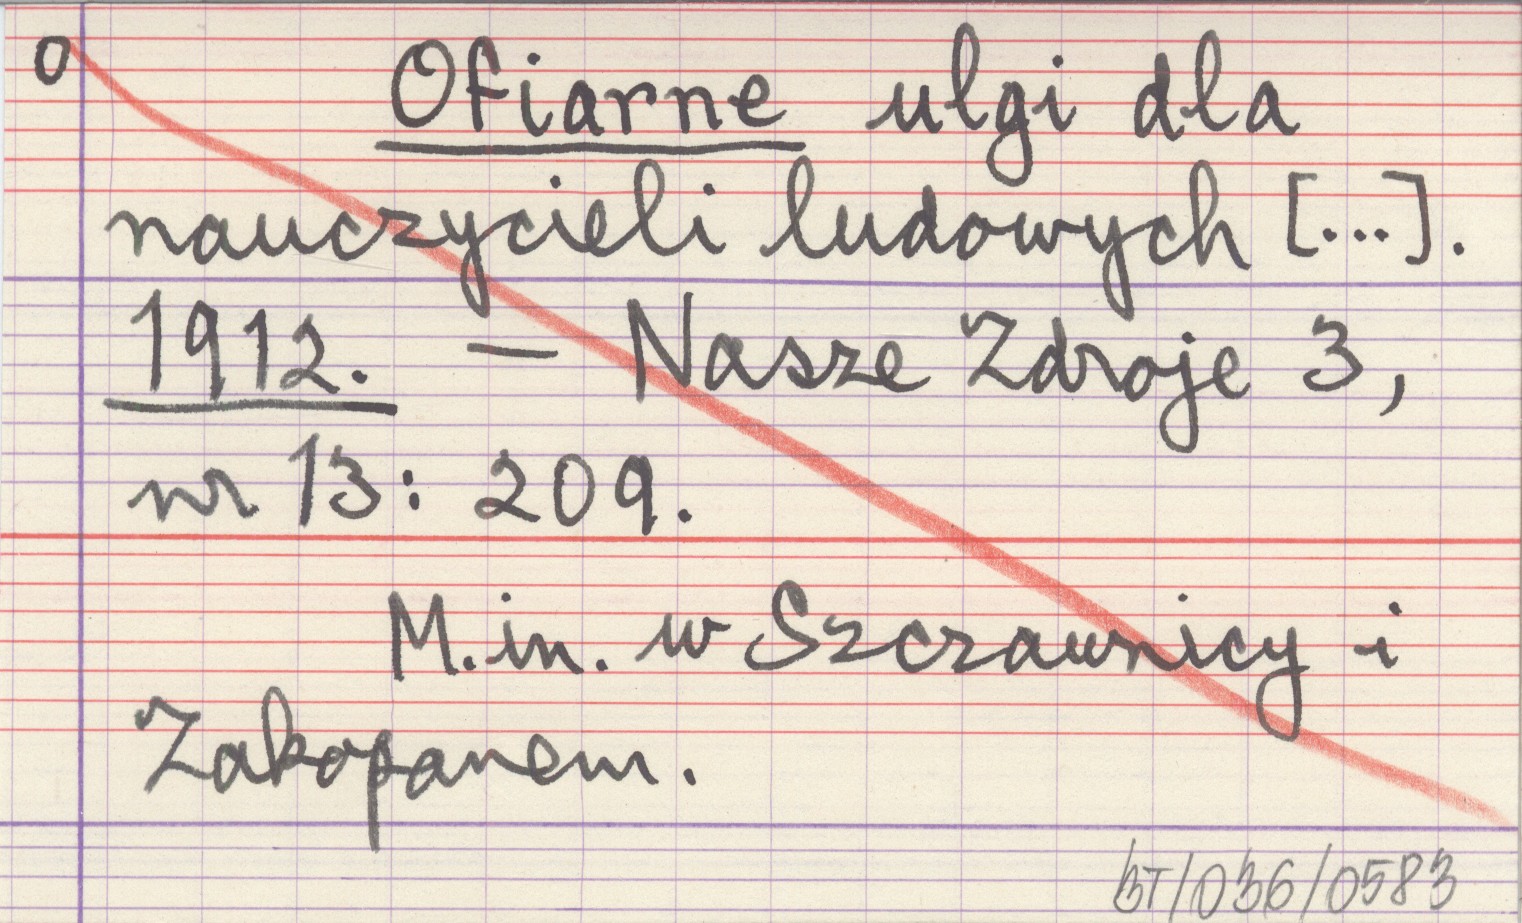 O
Ofiarne ulgi dla
nauczycieli ludowych [...].
1912. — Nasze Zdroje 3,
nr 13: 209.
M.in. w Szczawnicy i
Zakopanem.
BT/036/0583